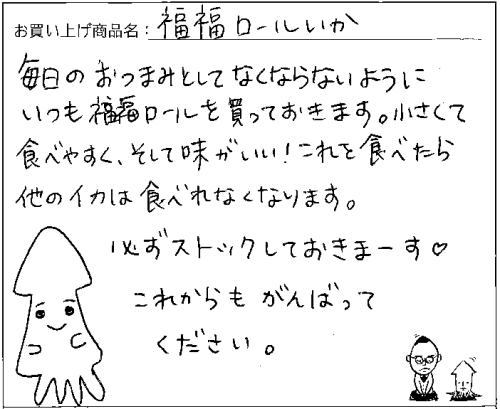 お買い上げ商品名：福福ロールいか
毎日のおつまみとしてなくならないように
いつも福福ロールを買っておきます。小さくて
食べやすく、そして味がいい！これを食べたら
他のイカは食べれなくなります。
必ずストックしておきまーす♡
これからもがんばって
ください。